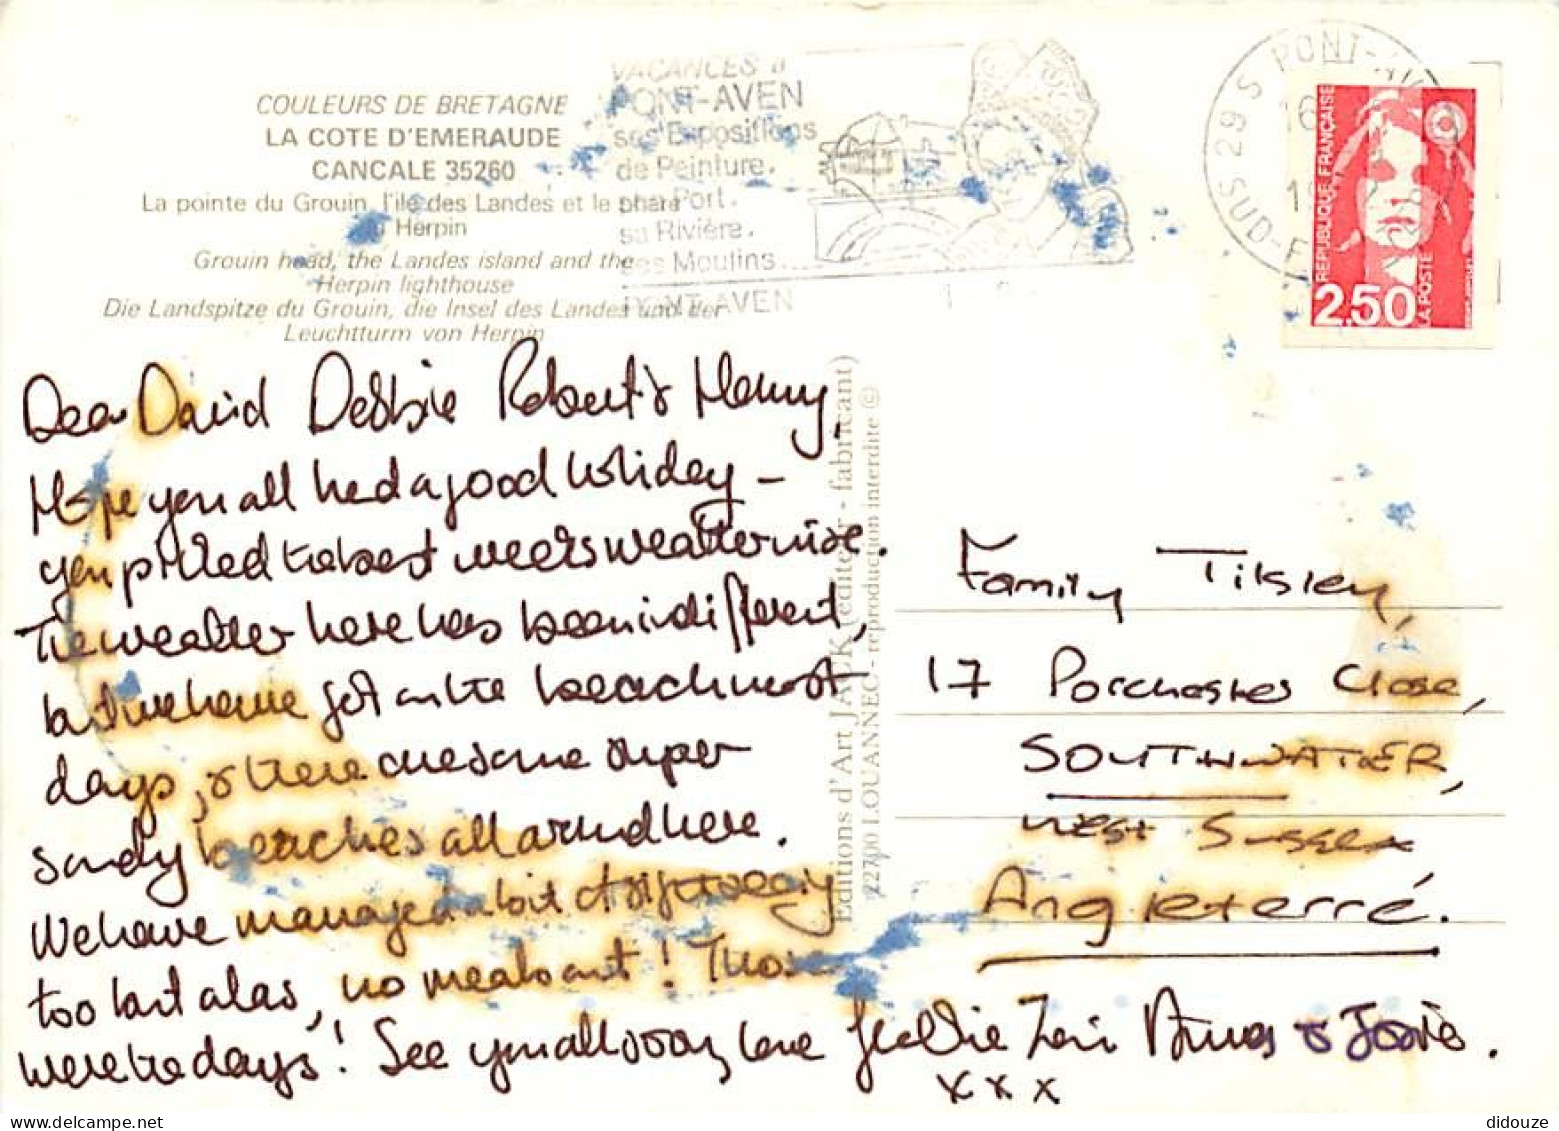 COULEURS DE BRETAGNE
LA COTE D'EMERAUDE
CANCALE 35260
La pointe du Grouin, l'île des Landes et le phare
Herpin
Grouin head, the Landes island and the
Herpin lighthouse
Die Landspitze du Grouin, die Insel des Landes und der
Leuchtturm von Herpin
VACANCES à
PONT-AVEN
ses Expositions
de Peinture.
son Port.
sa Rivière.
ses Moulins.
PONT-AVEN
29 S PONT-AVEN
SUD-F
REPUBLIQUE FRANÇAISE
2,50
LA POSTE
Dear David Debbie Robert & Henry,
Hope you all had a good holiday –
you picked the best weeks weatherwise.
The weather here has been indifferent,
but we have got on the beach most
days, & there are some super
sandy beaches all around here.
We have managed a bit of sightseeing
too but alas, no meals out! Those
were the days! See you all soon, love
xxx
Editions d'Art JACK (éditeur - fabricant)
22700 LOUANNEC - reproduction interdite ©
Family Tilsley,
17 Porchester Close,
SOUTHWATER,
West Sussex
Angleterré.
didouze